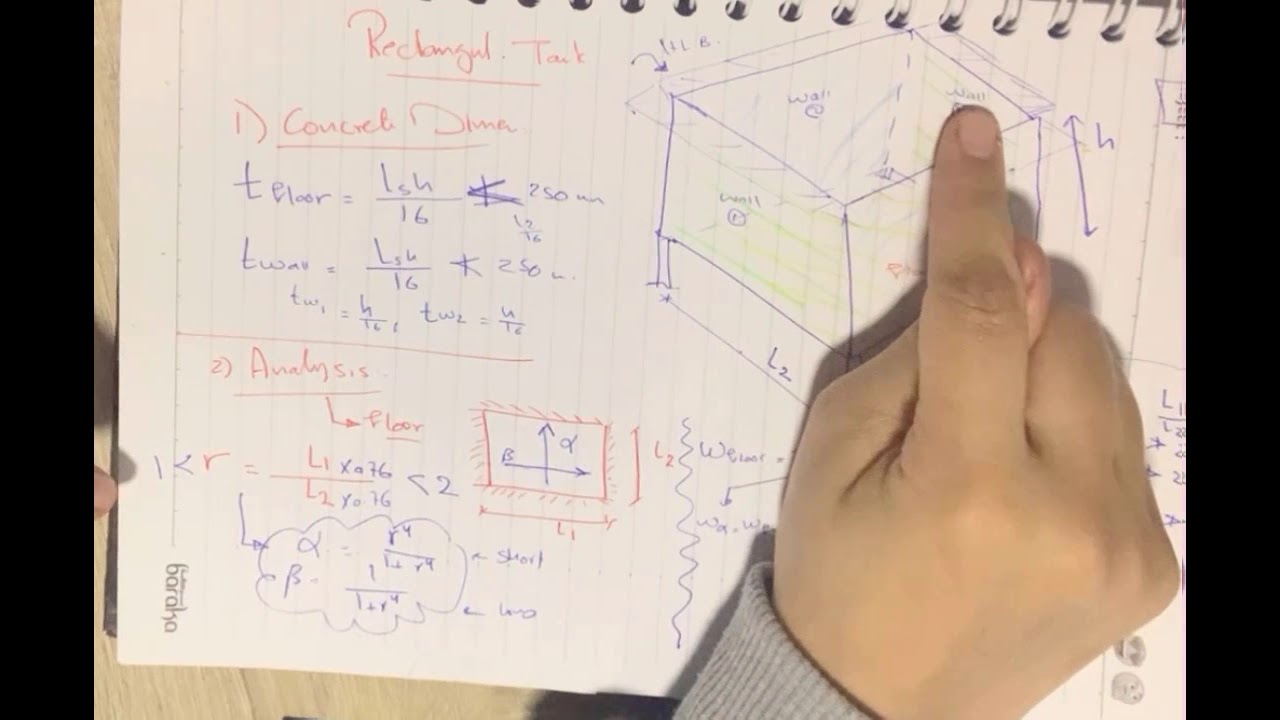 Rectangul. Tank
1) Concrete Dimen.
t Floor = Lsh / 16 ≮ 250 mm
L2 / 16
t wall = Lsh / 16 ≮ 250
tw1 = h / 16, tw2 = h / 16
2) Analysis
Floor
1 < r = L1 x 0.76 / L2 x 0.76 < 2
α = r⁴ / 1 + r⁴ ← short
β = 1 / 1 + r⁴ ← long
α
β
L2
L1
H.B.
wall
wall
wall
h
L2
W Floor =
Wα =
L1
baraka